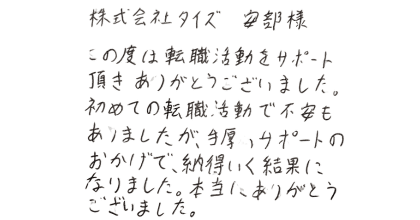 株式会社タイズ 安部様
この度は転職活動をサポート
頂きありがとうございました。
初めての転職活動で不安も
ありましたが、手厚いサポートの
おかげで、納得いく結果に
なりました。本当にありがとう
ございました。